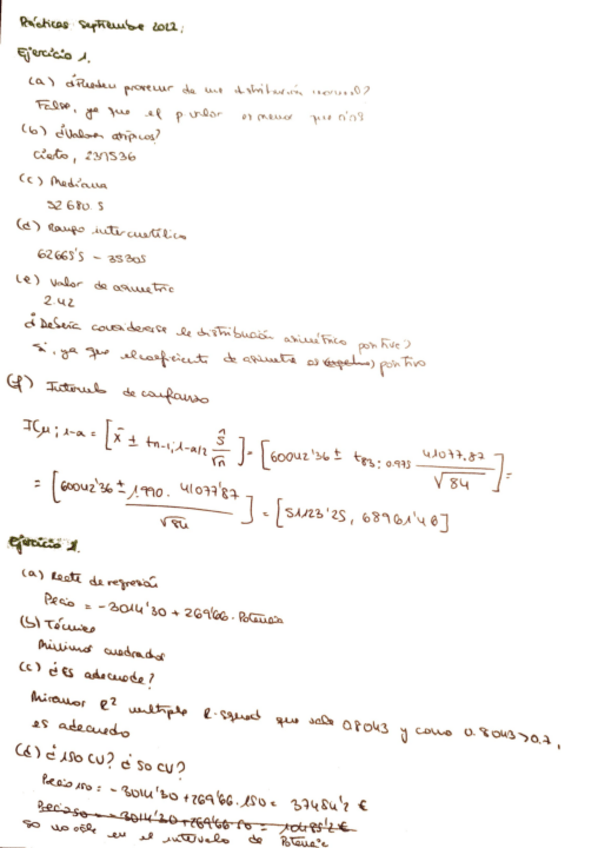 Prácticas Septiembre 2022:
Ejercicio 1.
(a) ¿Pueden provenir de una distribución normal?
Falso, ya que el p valor es menor que
(b) ¿Valores atípicos?
Cierto, 237536
(c) Mediana
52680.5
(d) Rango intercuartílico
62665'5 - 35305
(e) Valor de asimetría
2.42
¿Debería considerarse la distribución asimétrica positiva?
Si, ya que el coeficiente de asimetría es positivo
(f) Intervalo de confianza
ICμ; 1-α = [x̄ ± tn-1; 1-α/2 ŝ/√n] = [60042'36 ± t83; 0.975 41077.87/√84] =
= [60042'36 ± 1.990. 41077'87/√84] = [51123'25, 68961'48]
Ejercicio 2.
(a) Recta de regresión
Precio = -3014'30 + 269'66. Potencia
(b) Técnica
Mínimos cuadrados
(c) ¿Es adecuado?
Miramos R² multiple R-squared que vale 0.8043 y como 0.8043>0.7,
es adecuado
(d) ¿150 CV? ¿50 CV?
Precio 150 = -3014'30 + 269'66. 150 = 37484'2 €
Precio 50 = -3014'30 + 269'66 50 = 10485'2 €
50 no está en el intervalo de Potencia